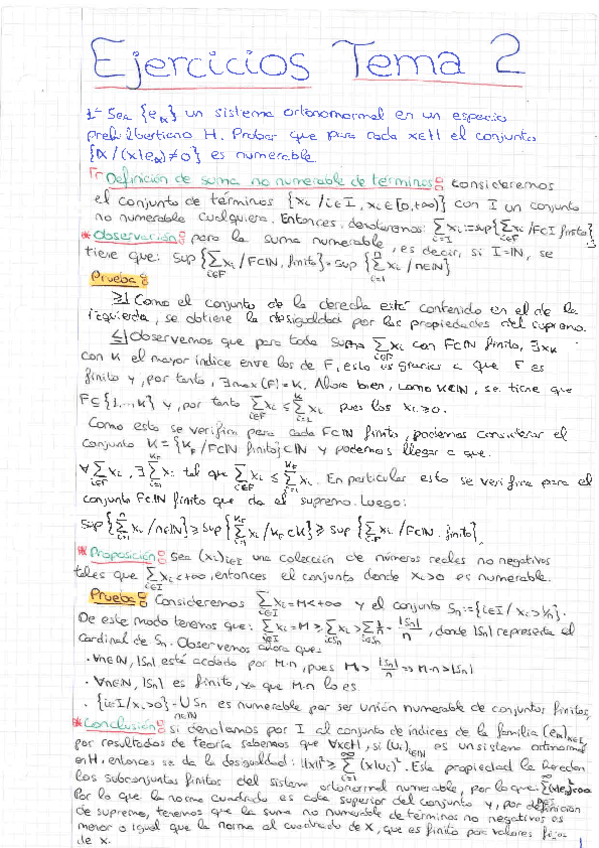 Ejercicios Tema 2
1- Sea {eα} un sistema ortonormal en un espacio
prehilbertiano H. Probar que para cada x∈H el conjunto
{α /(x|eα)≠0} es numerable.
Definición de suma no numerable de términos: consideremos
el conjunto de términos {xi /i∈I, xi∈[0,+∞)} con I un conjunto
no numerable cualquiera. Entonces, denotaremos: ∑xi:=sup{∑xi /F⊂I finito}
i∈I i∈F
*Observación: para la suma numerable, es decir, si I=ℕ, se
tiene que: sup{∑xi /F⊂ℕ, finito}=sup{∑xi /n∈ℕ}
i∈F i=1 n
Prueba:
≥| Como el conjunto de la derecha está contenido en el de la
izquierda, se obtiene la desigualdad por las propiedades del supremo.
≤| Observemos que para toda suma ∑xi con F⊂ℕ finito, ∃xk
con k el mayor índice entre los de F, esto es gracias a que F es
finito y, por tanto, ∃max(F)=k. Ahora bien, como k∈ℕ, se tiene que
F⊆{1,...,k} y, por tanto ∑xi ≤ ∑xi pues los xi≥0.
Como esto se verifica para cada F⊂ℕ finito, podemos considerar el
conjunto K={kF /F⊂ℕ finito}⊂ℕ y podemos llegar a que:
∀∑xi, ∃∑xi tal que ∑xi ≤ ∑xi. En particular esto se verifica para el
conjunto F⊂ℕ finito que da el supremo. Luego:
sup{∑xi /n∈ℕ}≥sup{∑xi /kF∈K}≥sup{∑xi /F⊂ℕ finito}
*Proposición: sea (xi)i∈I una colección de números reales no negativos
tales que ∑xi<+∞, entonces el conjunto donde xi>0 es numerable.
Prueba: Consideremos ∑xi=M<+∞ y el conjunto Sn:={i∈I/ xi>1/n}.
De este modo tenemos que: ∑xi=M≥∑xi>∑1/n=|Sn|/n, donde |Sn| representa el
cardinal de Sn. Observemos ahora que:
· ∀n∈ℕ, |Sn| está acotado por M·n, pues M>|Sn|/n ⇒ M·n>|Sn|
· ∀n∈ℕ, |Sn| es finito, ya que M·n lo es.
· {i∈I/xi>0}=∪Sn es numerable por ser unión numerable de conjuntos finitos.
n∈ℕ
*Conclusión: si denotamos por I al conjunto de índices de la familia (eα)α∈I,
por resultados de teoría sabemos que ∀x∈H, si (ui)i∈ℕ es un sistema ortonormal
en H, entonces se da la desigualdad: ||x||²≥∑(x|ui)². Esta propiedad la heredan
los subconjuntos finitos del sistema ortonormal numerable, por lo que:
Por lo que la norma cuadrado es cota superior del conjunto y, por definición
de supremo, tenemos que la suma no numerable de términos no negativos es
menor o igual que la norma al cuadrado de x, que es finita por valores fijos
de x.
1